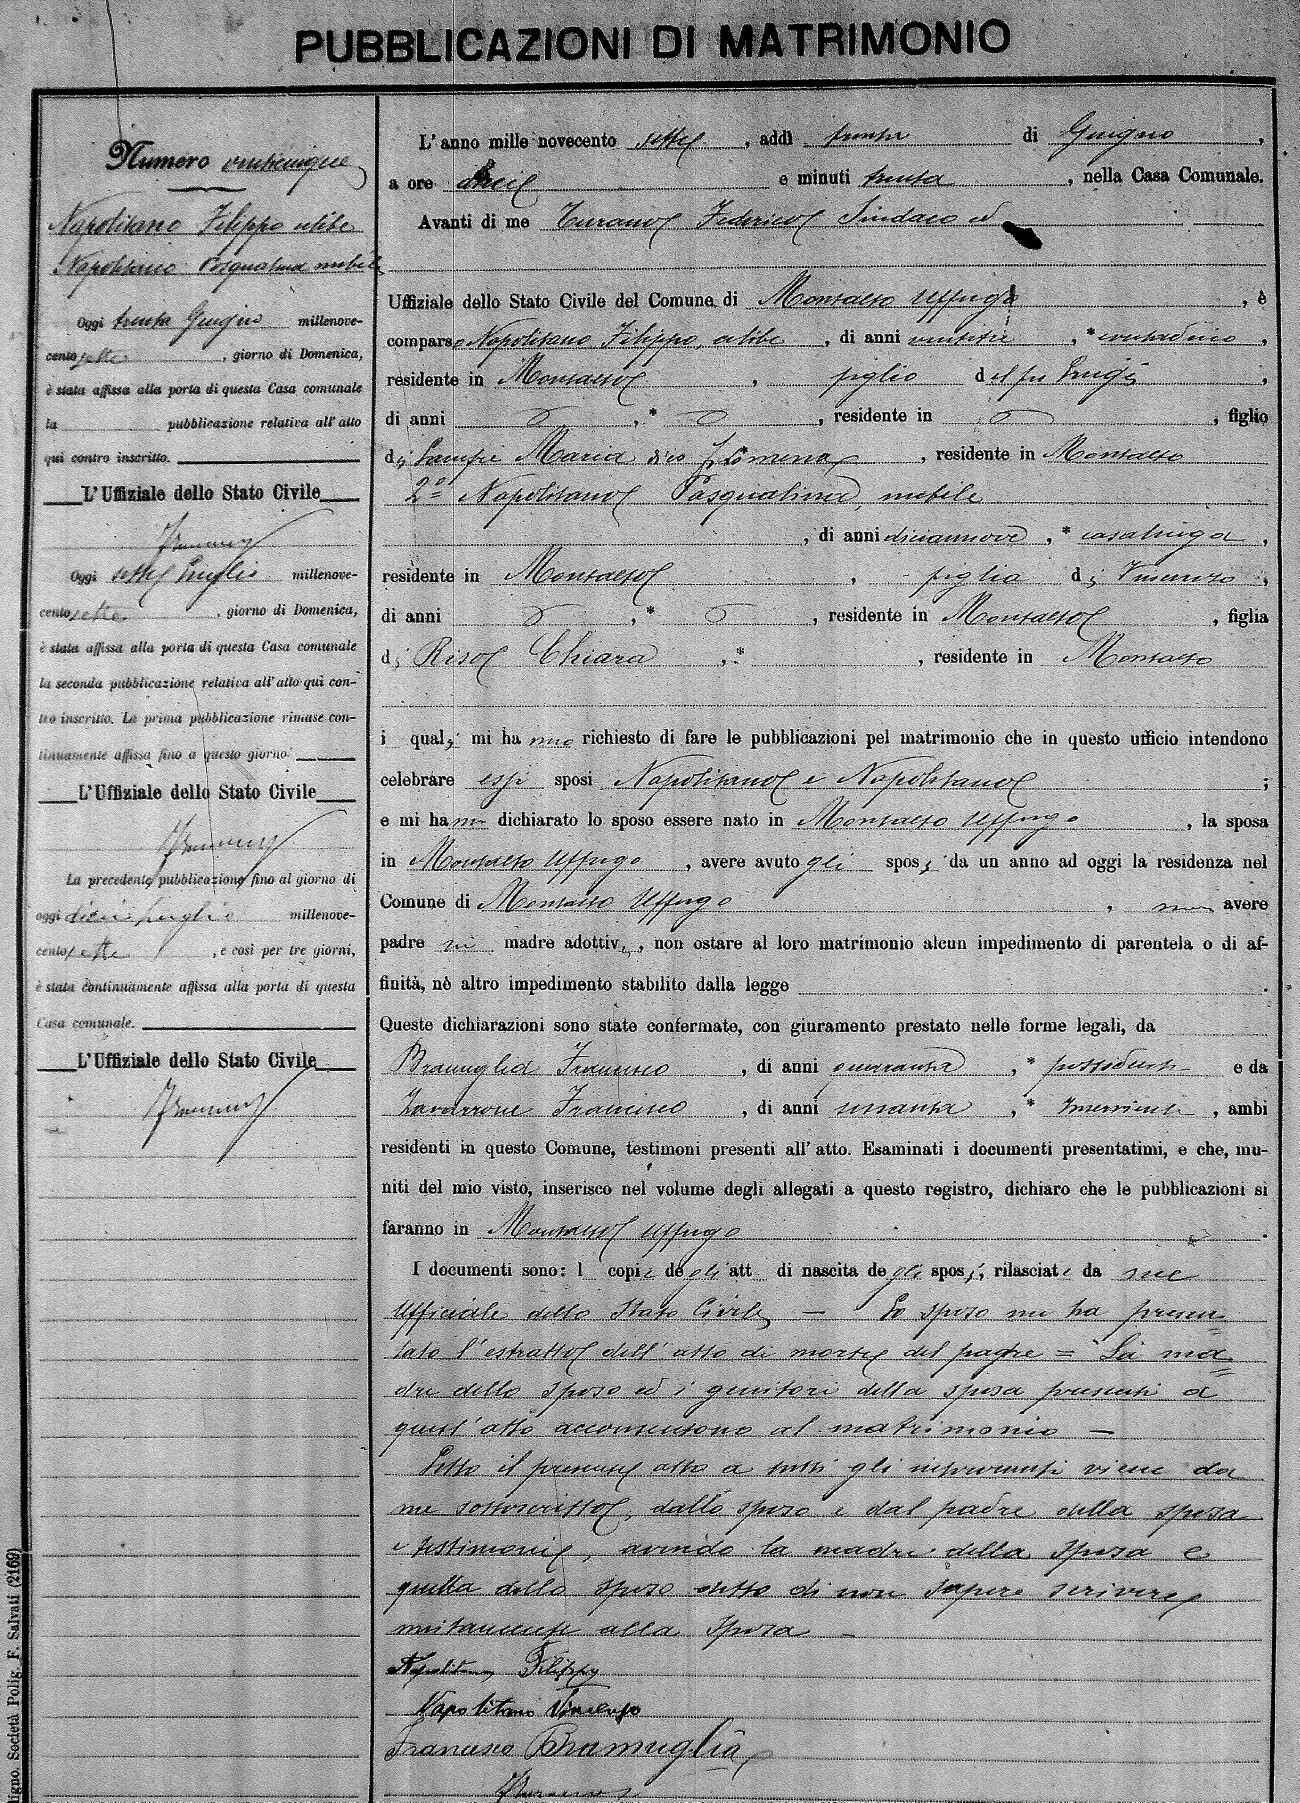 PUBBLICAZIONI DI MATRIMONIO
Numero venticinque
Napolitano Filippo celibe
Napolitano Pasqualina nubile
Oggi trenta Giugno millenove-
cento sette, giorno di Domenica,
è stata affissa alla porta di questa Casa comunale
la pubblicazione relativa all'atto
qui contro inscritto.
L'Uffiziale dello Stato Civile
Oggi sette Luglio millenove-
cento sette, giorno di Domenica,
è stata affissa alla porta di questa Casa comunale
la seconda pubblicazione relativa all'atto qui con-
tro inscritto. La prima pubblicazione rimase con-
tinuamente affissa fino a questo giorno.
L'Uffiziale dello Stato Civile
La precedente pubblicazione fino al giorno di
oggi dieci luglio millenove-
cento sette, e così per tre giorni,
è stata continuamente affissa alla porta di questa
Casa comunale.
L'Uffiziale dello Stato Civile
L'anno mille novecento sette, addì trenta di Giugno,
a ore dieci e minuti trenta, nella Casa Comunale.
Avanti di me Turano Federico Sindaco ed
Uffiziale dello Stato Civile del Comune di Montalto Uffugo, è
comparso Napolitano Filippo, celibe, di anni ventitre, * contadino,
residente in Montalto, figlio del fu Luigi,
di anni , * , residente in , figlio
di Maria dico Filomena, residente in Montalto
2º Napolitano Pasqualina, nubile
, di anni diciannove, * casalinga,
residente in Montalto, figlia di Vincenzo,
di anni , * , residente in Montalto, figlia
di Riso Chiara, * , residente in Montalto
i quali mi hanno richiesto di fare le pubblicazioni pel matrimonio che in questo ufficio intendono
celebrare essi sposi Napolitano e Napolitano ;
e mi hanno dichiarato lo sposo essere nato in Montalto Uffugo, la sposa
in Montalto Uffugo, avere avuto gli sposi da un anno ad oggi la residenza nel
Comune di Montalto Uffugo, non avere
padre nè madre adottivi, non ostare al loro matrimonio alcun impedimento di parentela o di af-
finità, nè altro impedimento stabilito dalla legge .
Queste dichiarazioni sono state confermate, con giuramento prestato nelle forme legali, da
Bramuglia Francesco, di anni quaranta, * possidente e da
Zavarrone Francesco, di anni sessanta, * Inserviente, ambi
residenti in questo Comune, testimoni presenti all'atto. Esaminati i documenti presentatimi, e che, mu-
niti del mio visto, inserisco nel volume degli allegati a questo registro, dichiaro che le pubblicazioni si
faranno in Montalto Uffugo.
I documenti sono: l copie degli att di nascita degli sposi, rilasciate da me
Ufficiale dello Stato Civile — Lo sposo mi ha presen=
tato l'estratto dell'atto di morte del padre = La ma=
dre dello sposo ed i genitori della sposa presenti a
quest'atto acconsentono al matrimonio —
Letto il presente atto a tutti gli intervenuti viene da
me sottoscritto, dallo sposo e dal padre della sposa
e testimonie, avendo la madre della sposa e
quella dello sposo detto di non sapere scrivere
unitamente alla sposa —
Napolitano Filippo
Napolitano Vincenzo
Francesco Bramuglia
ligno. Società Polig. F. Salvati (2169)